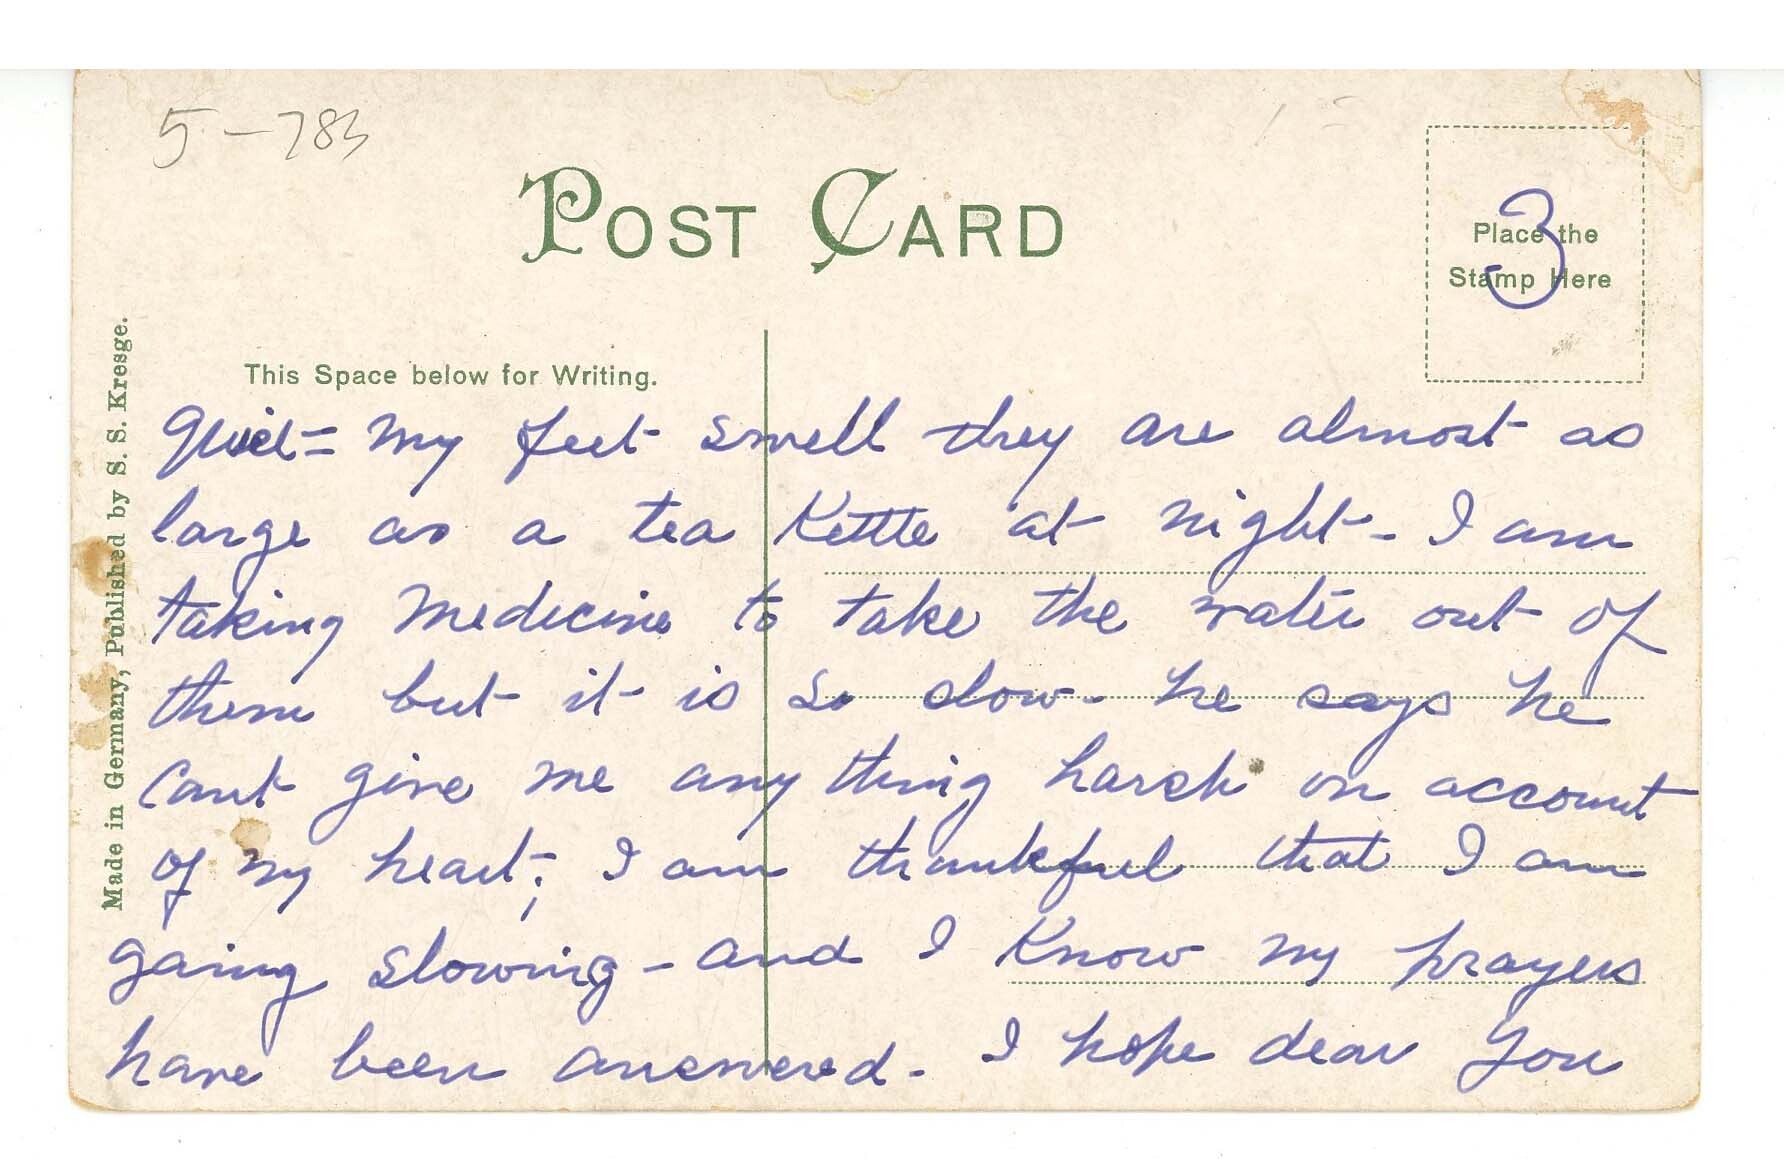 5-783
POST CARD
Place the
Stamp Here
3
This Space below for Writing.
Made in Germany, Published by S. S. Kresge.
quiet= My feet swell they are almost as
large as a tea Kettle at night- I am
taking medicine to take the water out of
them but it is so slow- he says he
Cant give me any thing harsh on account
of my heart; I am thankful that I am
gaing slowing - and I Know my prayers
have been answered. I hope dear you